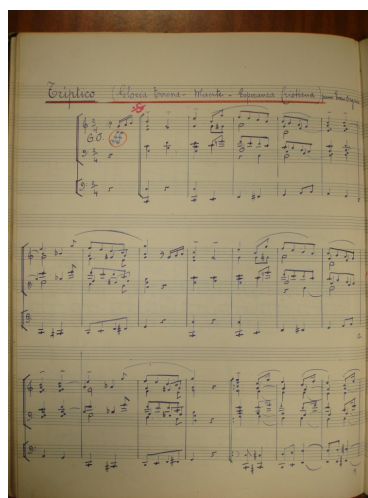 Tríptico (Gloria Terrena - Muerte - Esperanza Cristiana) para Gran Organo
G.O.